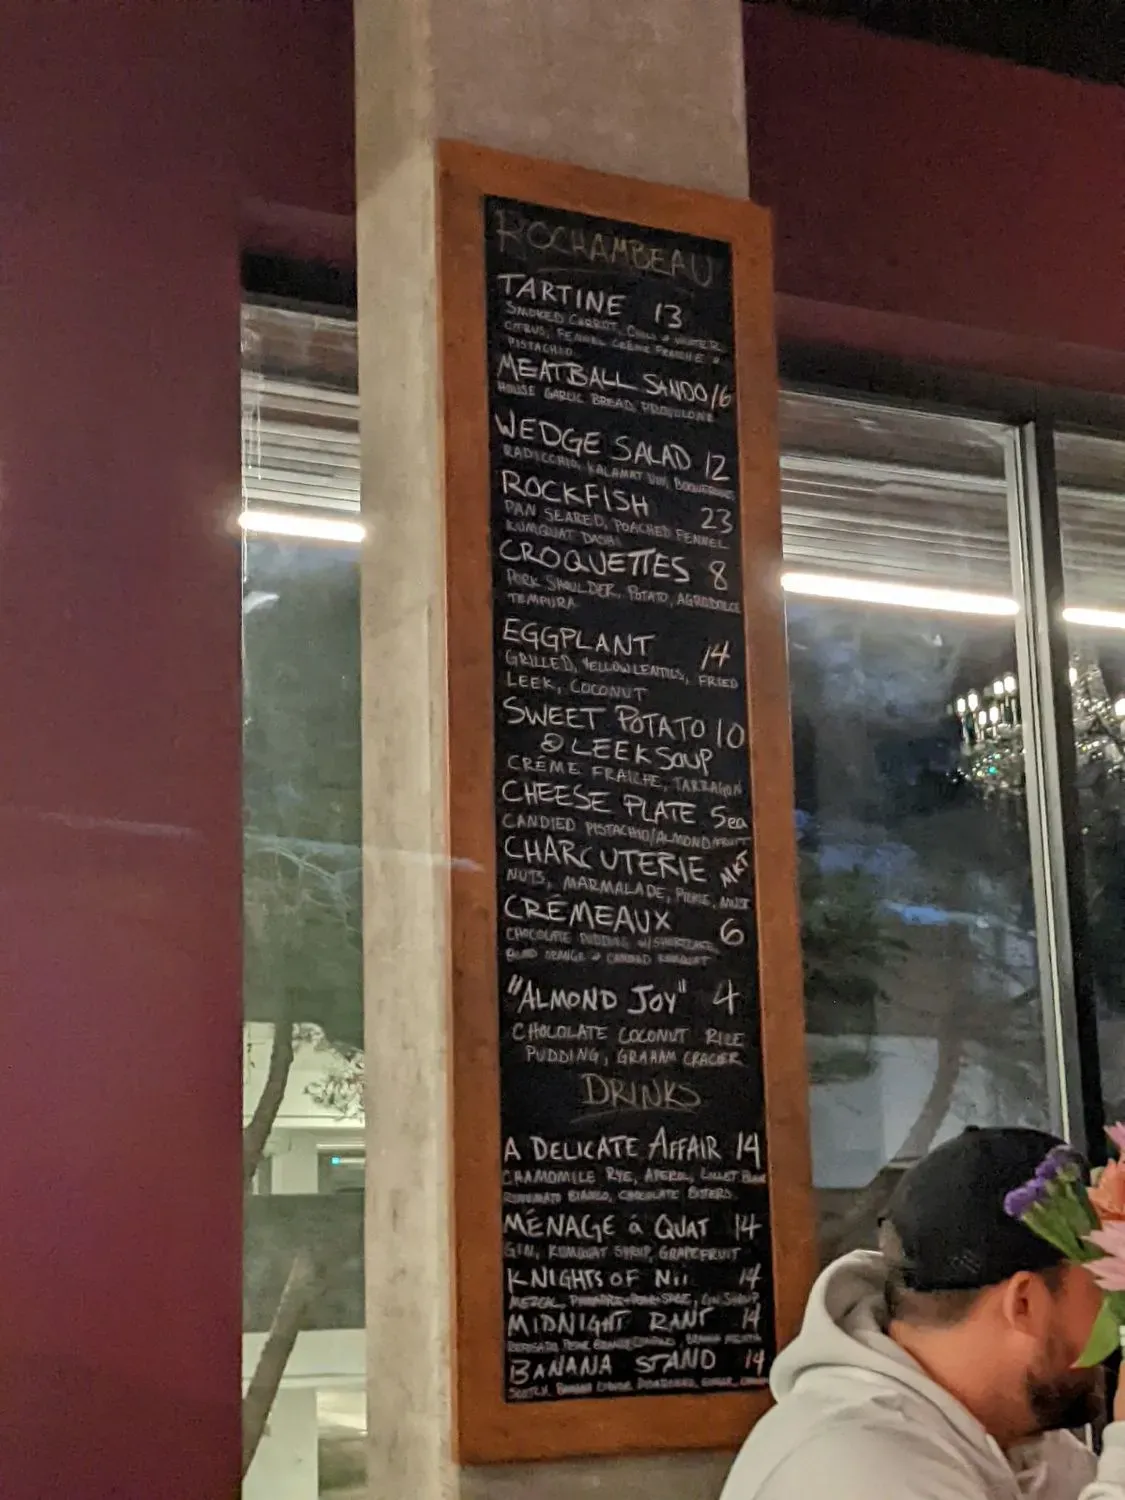 ROCHAMBEAU
TARTINE 13
SMOKED CARROT, CHILI & WINTER
CITRUS, FENNEL CRÈME FRAICHE &
PISTACHIO
MEATBALL SANDO 16
HOUSE GARLIC BREAD, PROVOLONE
WEDGE SALAD 12
RADICCHIO, KALAMATA
ROCKFISH 23
PAN SEARED, POACHED FENNEL
KUMQUAT DASHI
CROQUETTES 8
PORK SHOULDER, POTATO, AGRODOLCE
TEMPURA
EGGPLANT 14
GRILLED, YELLOW LENTILS, FRIED
LEEK, COCONUT
SWEET POTATO 10
& LEEK SOUP
CRÉME FRAICHE, TARRAGON
CHEESE PLATE 5ea
CANDIED PISTACHIO/ALMOND/FRUIT
CHARCUTERIE MKT
NUTS, MARMALADE, PICKLE, MUST
CRÉMEAUX 6
CHOCOLATE PUDDING W/SHORTCAKE
BLOOD ORANGE & CANDIED KUMQUAT
"ALMOND JOY" 4
CHOCOLATE COCONUT RICE
PUDDING, GRAHAM CRACKER
DRINKS
A DELICATE AFFAIR 14
CHAMOMILE RYE, APEROL, LILLET BLANC
BIANCO, CHOCOLATE BITTERS
MÉNAGE á QUAT 14
GIN, KUMQUAT SYRUP, GRAPEFRUIT
KNIGHTS OF Nii 14
MEZCAL,
MIDNIGHT RANT 14
BANANA STAND 14
SCOTCH, BANANA